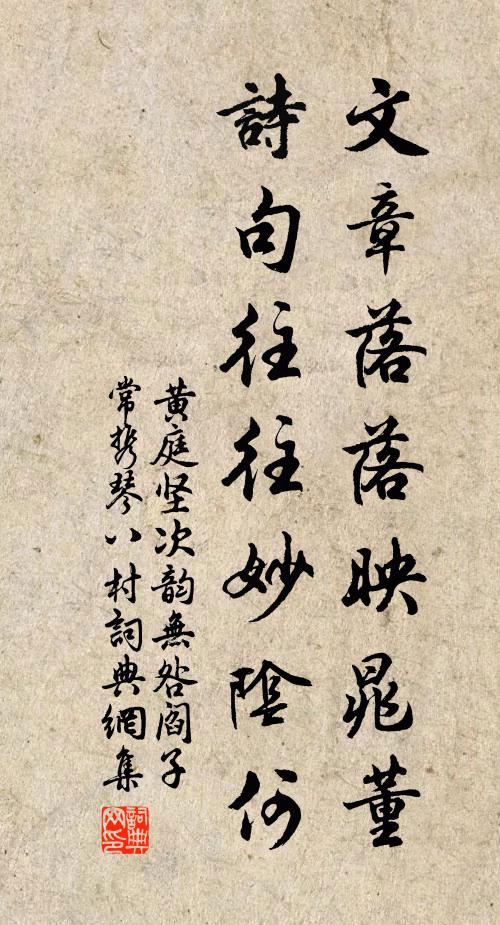 文章落落映晁董
詩句往往妙陰何
黄庭坚次韵無咎阎子
常携琴八村詞典網集
詞典网印